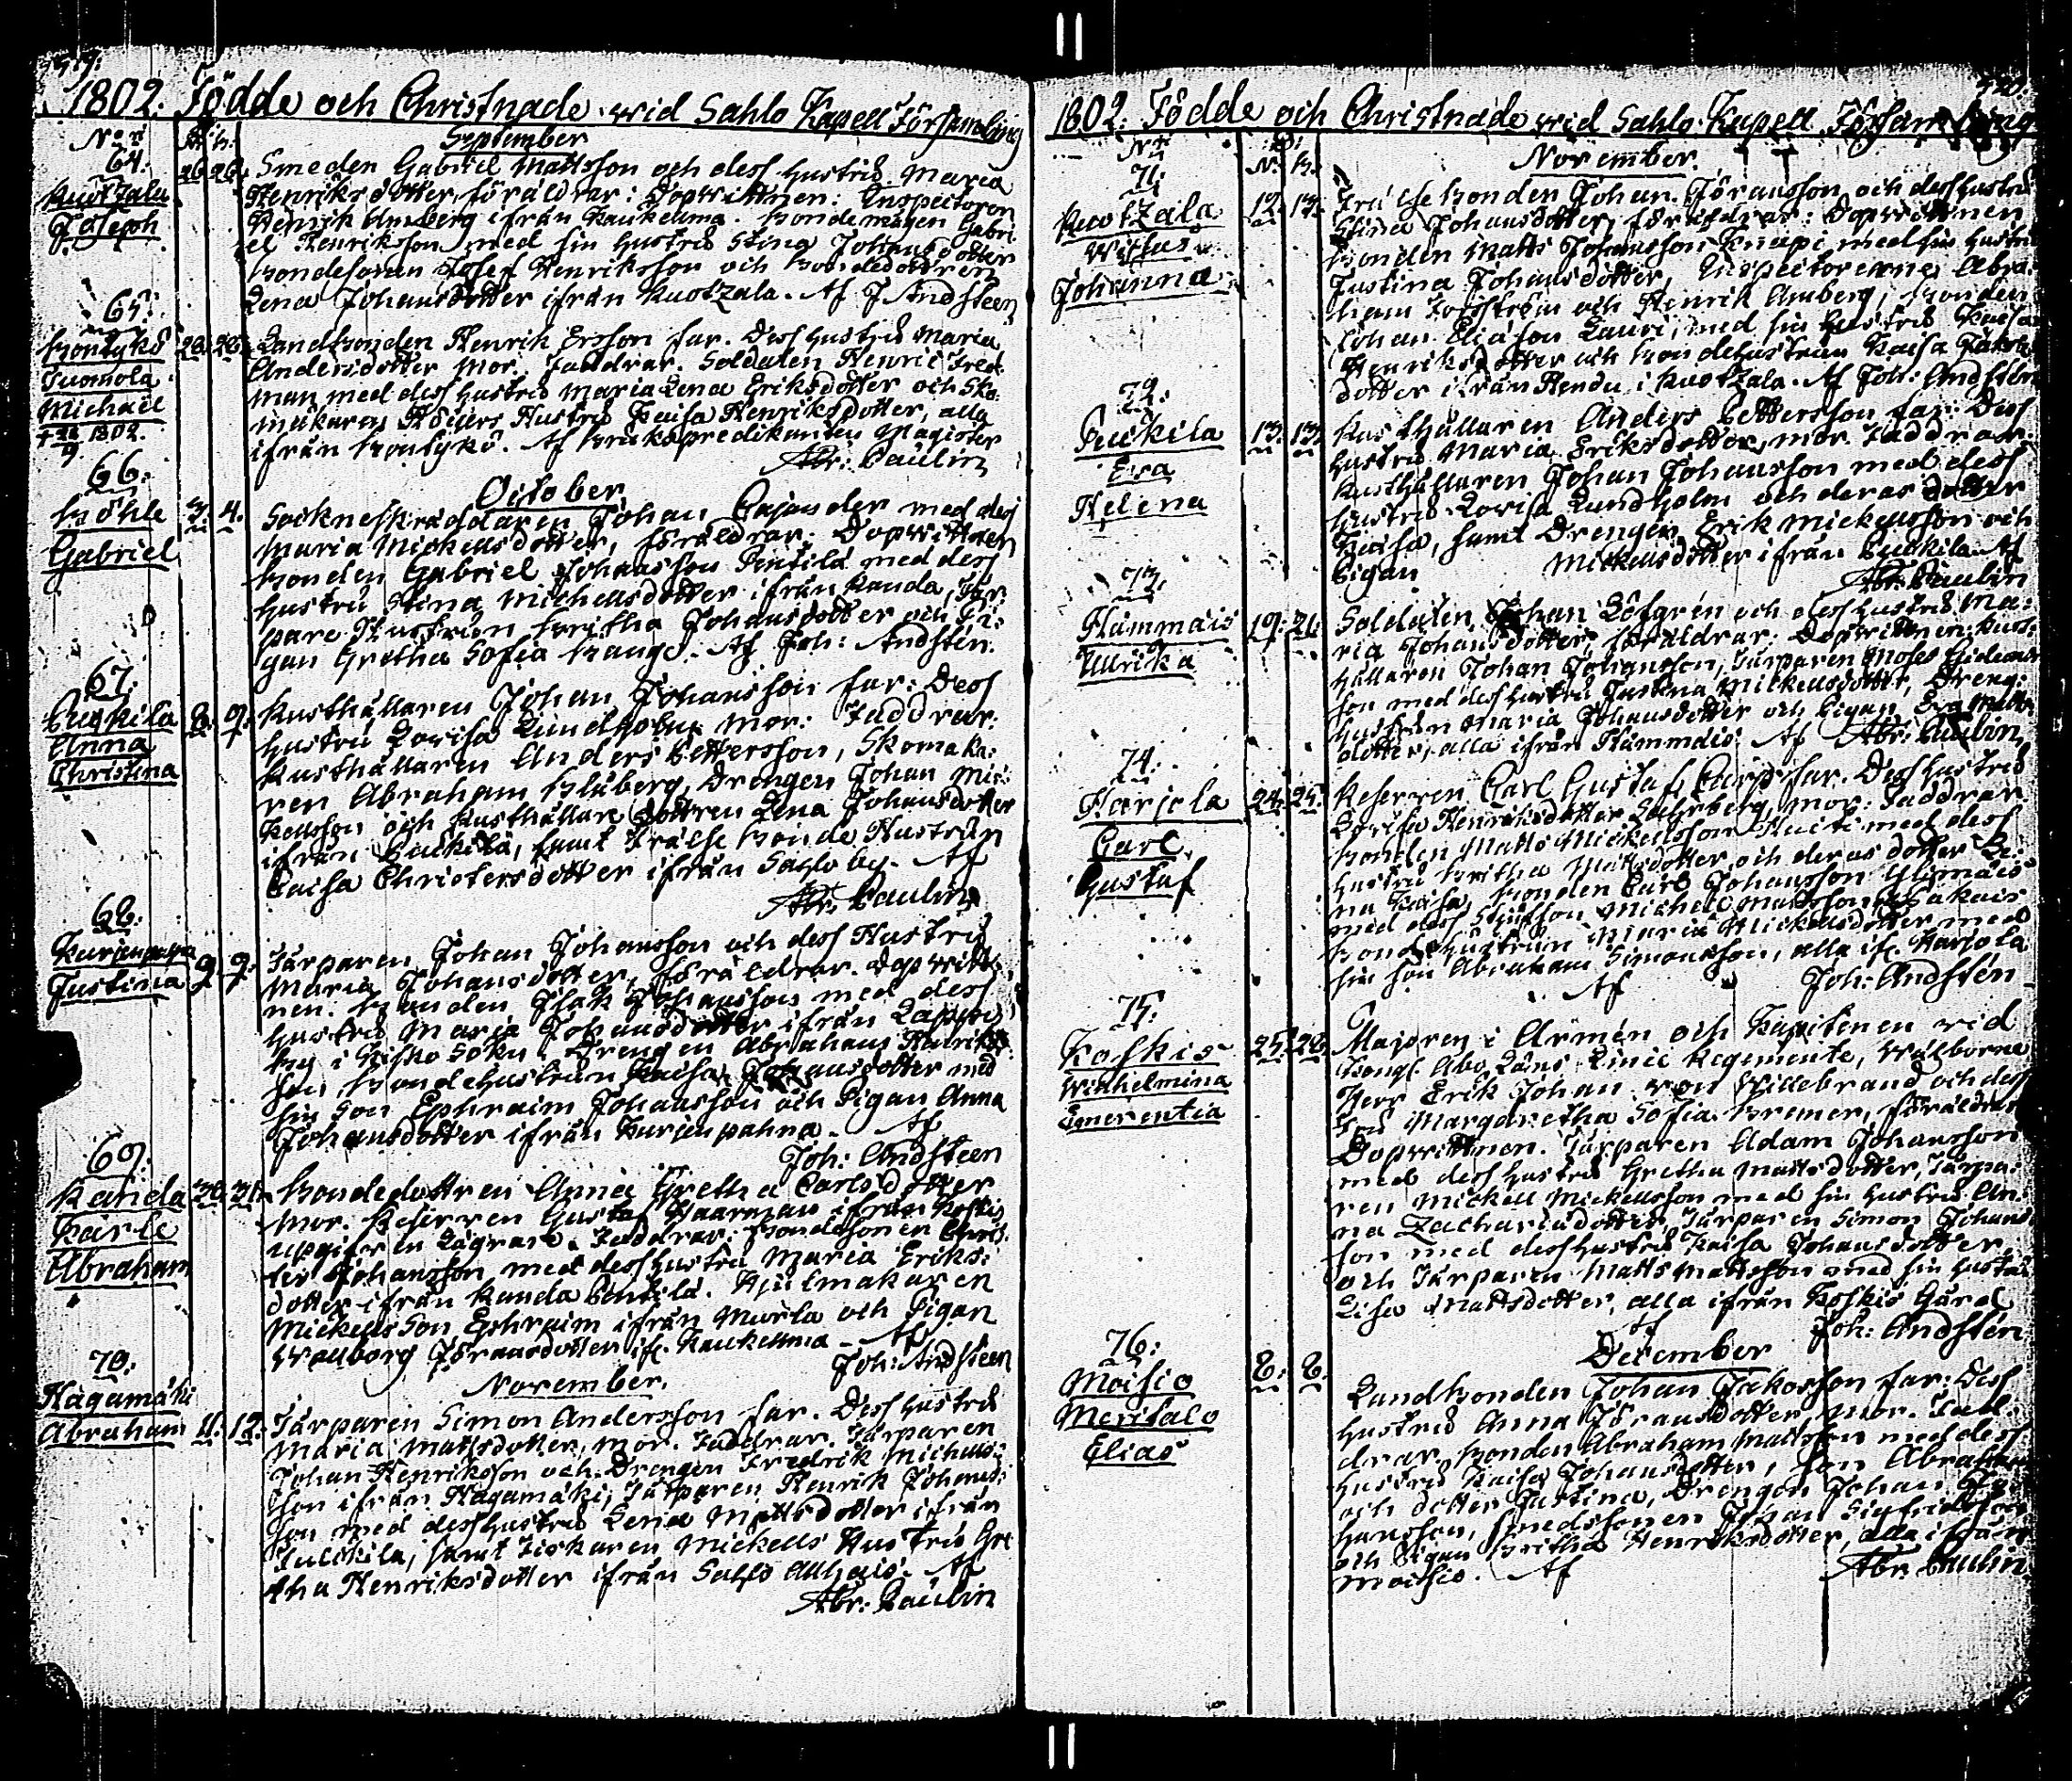 1802. Födde och Christnade wid Sahlo Kapell Församling
September
64.
Kuotzala
Joseph
26 26.
Smeden Gabriel Mattsson och dess hustru Maria
Henriksdotter, föräldrar: Dopwittnen: Inspectoren
Henrik Amberg ifrån Kaukelma. Bondemågen Gabri-
el Henriksson med sin hustru Stina Johansdotter
bondesonen Josef Henriksson och bondedottren
Lena Johansdotter ifrån Kuotzala. Af J Andsteen
65.
Tuomola
Michaël
1802.
9
28. 28.
Landbonden Henrik Ersson far. Dess hustru Maria
Andersdotter mor. Faddrar. Soldaten Henric Fred-
man med dess hustru Maria Lena Eriksdotter och Sko-
makaren Höijers Hustru Kaisa Henriksdotter, alla
ifrån. Af Brukspredikanten Magister
Abr: Paulin
66.
October
Böhle
Gabriel
3. 4.
Sockneskräddaren Johan Cajander med dess
Maria Mickellsdotter, föräldrar. Dopwittnen
bonden Gabriel Johansson Pentilä med dess
hustru Stina Michellsdotter ifrån Kanda, Tor-
pare Hustrun Britha Johansdotter och Pi-
gan Gretha Sofia Bange. Af Joh: Andsten.
67.
Puckila
Anna
Christina
8. 9.
Rusthållaren Johan Johansson far: Dess
hustru Lowisa Lundholm mor: Faddrar:
Rusthållaren Anders Pettersson, Skomaka-
ren Abraham Blåberg, Drengen Johan Mic-
kellsson och Rusthållare Dottren Lena Johansdotter
ifrån Puckila, samt Frälse Bonde Hustrun
Caisa Christersdotter ifrån Sahlo by. Af
Abr. Paulin
68.
Kurjenpahna
Justina
9. 9.
Torparen Johan Johansson och dess Hustru
Maria Johansdotter, föräldrar. Dopwitt-
nen. Bonden Isak Johansson med dess
hustru Maria Johansdotter ifrån Lappi
by i Kisko Sokn. Drengen Abraham Henriks-
son, Bondehustrun Kaisa Johansdotter med
sin son Ephraim Johansson och Pigan Anna
Johansdotter ifrån Kurjenpahna. Af
Joh: Andsteen
69.
Kanda
Karle
Abraham
30. 31.
Bondedottren Anna Gretha Carlsdotter
mor. Reserven Gustaf Haarman ifrån Koski
upgifven Lägrare. Faddrar: bondesonen Chris-
ter Johansson med dess hustru Maria Eriks-
dotter ifrån Kanda Pentilä. Hjulmakaren
Mickells Son Ephraim ifrån Murla och Pigan
Walborg Göransdotter if. Kaukelma. Af
Joh: Andsteen
70.
November.
Hagamäki
Abraham 11. 12.
Torparen Simon Andersson far. Dess hustru
Maria Mattsdotter, mor. Faddrar. Torparen
Johan Henriksson och Drengen Fredrik Michells-
son ifrån Hagamäki, Torparen Henrik Johans-
son med dess hustru Lena Mattsdotter ifrån
samt Fiskaren Mickells Hustru Gre-
tha Henriksdotter ifrån Sahlo. Af
Abr: Paulin
1802. Födde och Christnade wid Sahlo Kapell Församling
November.
71.
Kuotzala
Johanna
12. 13.
Frälse bonden Johan Göransson och dess hustru
Stina Johansdotter, föräldrar: Dopwittnen
bonden Matts Johansson Knapi med sin hustru
Justina Johansdotter, Inspectorerne Abra-
ham Forsström och Henrik Amberg, bonden
Johan Eliason Lauri, med sin hustru Kaisa
Henriksdotter och bondehustrun Kaisa Jakobs-
dotter ifrån Hendu i Kuotzala. Af Joh: Andsten
72.
Puckila
Eva
Helena
13. 13.
Rusthållaren Anders Pettersson far: Dess
hustru Maria Eriksdotter, mor. Faddrar.
Rusthållaren Johan Johansson med dess
hustru Lowisa Lundholm och deras dotter
Kaisa, samt Drengen Erik Mickellsson och
Pigan Mickellsdotter ifrån Puckila Af
Abr: Paulin
73.
Hammais
Ullrika
19. 21.
Soldaten Johan Löfgren och dess hustru Ma-
ria Johansdotter, föräldrar. Dopwittnen: Rust-
hållaren Johan Johansson, Torparen Moses Gideons-
son med dess hustru Justina Mickellsdotter, Dreng-
hustrun Maria Johansdotter och Pigan Eva Matts-
dotter, alla ifrån Hammais. Af Abr: Paulin
74.
Harjola
Carl
Gustaf
24. 25.
Reserven Carl Gustaf Carp far. Dess hustru
Lovisa Henriksdotter Sahrberg, mor: Faddrar
Bonden Matts Mickellsson med dess
hustru Britha Mattsdotter och deras dotter Le-
na Kaisa, bonden Carl Johansson
med dess Michell Mattsson
bondehustrun Maria Mickellsdotter med
sin son Abraham Simonsson, alla if. Harjola
Af Joh: Andstén
75.
Koskis
Wilhelmina
Emerentia
25. 28.
Majoren i Armén och Kapitenen wid
Kongl. Åbo Läns Linie Regemente, Wälborne
Herr Erik Johan von Willebrand och dess
Fru Margaretha Sofia Bremer, föräldrar
Dopwittnen. Torparen Adam Johansson
med dess hustru Gretha Mattsdotter, Torpa-
ren Mickell Mickellsson med sin hustru An-
na Zachariadotter, Torparen Simon Johans-
son med dess hustru Kaisa Johansdotter
och Torparen Matts Mattsson med sin hustru
Lisa Mattsdotter, alla ifrån Koskis Gård
Af Joh: Andstén
76.
December
Moisio
Meritalo
Elias
8. 8.
Landbonden Johan Jakosson far: Dess
hustru Anna Göransdotter, mor. Fad-
drar. Bonden Abraham Mattsson med dess
hustru Kaisa Johansdotter, son Abraham
och dotter Justina, Drengen Johan Jo-
hansson, Smedssonen Johan Sigfridsson
och Pigan Britha Henriksdotter, alla ifrån
Moisio. Af Abr. Paulin